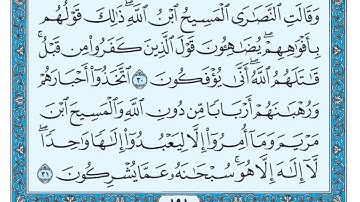 وَقَالَتِ ٱلنَّصَٰرَى ٱلْمَسِيحُ ٱبْنُ ٱللَّهِ ۖ ذَٰلِكَ قَوْلُهُم
بِأَفْوَٰهِهِمْ ۖ يُضَٰهِـُٔونَ قَوْلَ ٱلَّذِينَ كَفَرُوا۟ مِن قَبْلُ ۚ
قَٰتَلَهُمُ ٱللَّهُ ۚ أَنَّىٰ يُؤْفَكُونَ ٣٠ ٱتَّخَذُوٓا۟ أَحْبَارَهُمْ
وَرُهْبَٰنَهُمْ أَرْبَابًا مِّن دُونِ ٱللَّهِ وَٱلْمَسِيحَ ٱبْنَ
مَرْيَمَ وَمَآ أُمِرُوٓا۟ إِلَّا لِيَعْبُدُوٓا۟ إِلَٰهًا وَٰحِدًا ۖ
لَّآ إِلَٰهَ إِلَّا هُوَ ۚ سُبْحَٰنَهُۥ عَمَّا يُشْرِكُونَ ٣١
١٩١